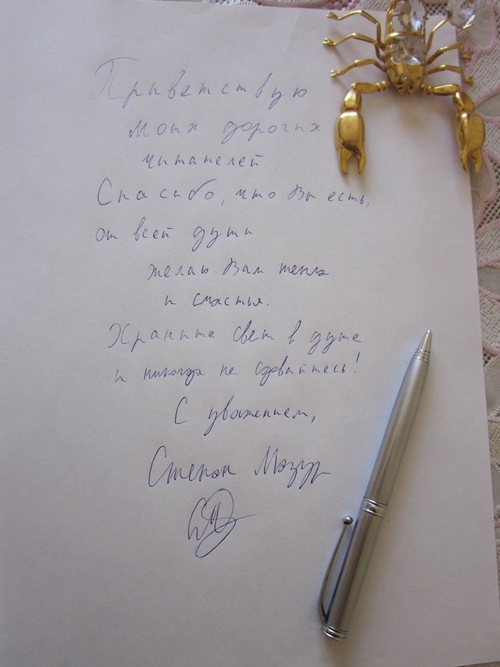 Приветствую
моих дорогих
читателей
Спасибо, что Вы есть,
от всей души
желаю Вам тепла
и счастья.
Храните свет в душе
и никогда не сдавайтесь!
С уважением,
Степан Мазур